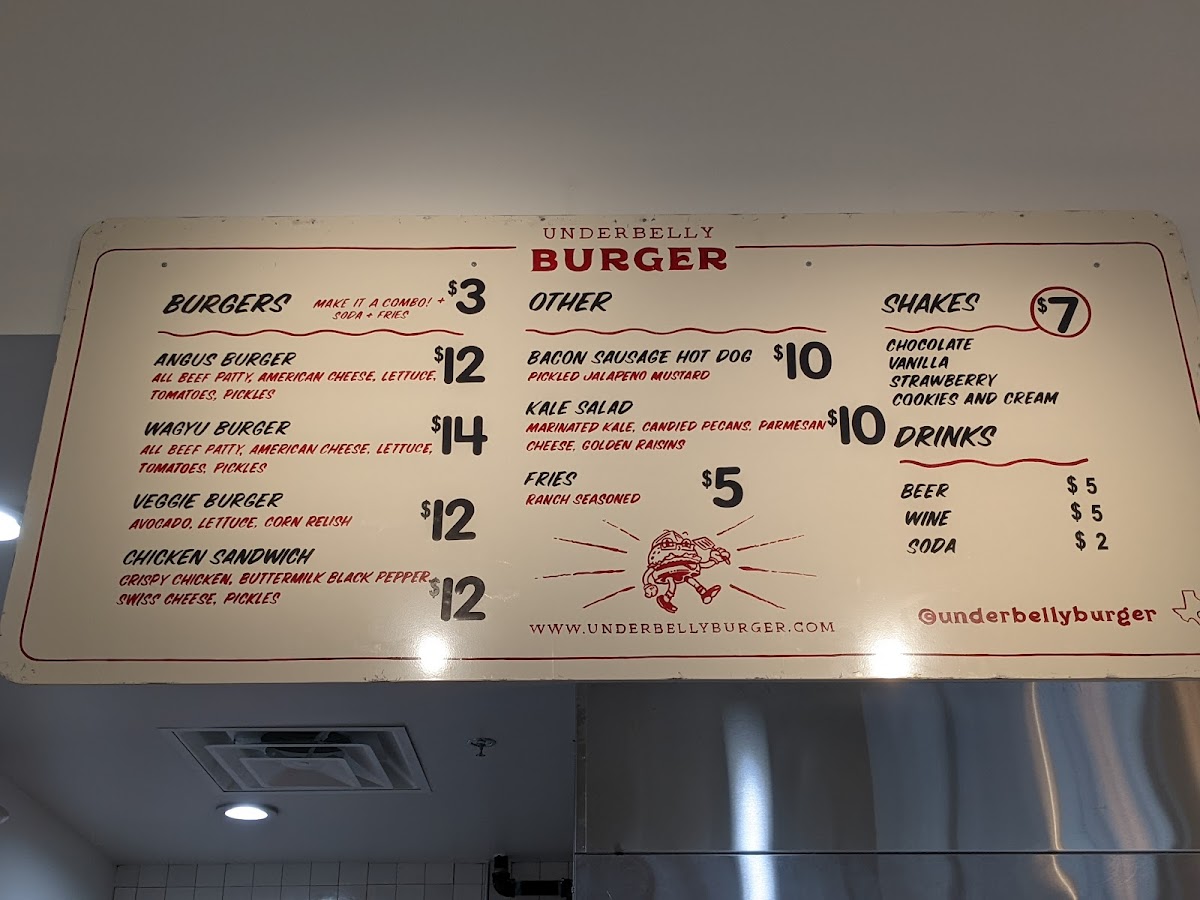 UNDERBELLY
BURGER
BURGERS
MAKE IT A COMBO! +
SODA + FRIES
$3
ANGUS BURGER
ALL BEEF PATTY, AMERICAN CHEESE, LETTUCE,
TOMATOES, PICKLES
$12
WAGYU BURGER
ALL BEEF PATTY, AMERICAN CHEESE, LETTUCE,
TOMATOES, PICKLES
$14
VEGGIE BURGER
AVOCADO, LETTUCE, CORN RELISH
$12
CHICKEN SANDWICH
CRISPY CHICKEN, BUTTERMILK BLACK PEPPER,
SWISS CHEESE, PICKLES
$12
OTHER
BACON SAUSAGE HOT DOG $10
PICKLED JALAPENO MUSTARD
KALE SALAD
MARINATED KALE, CANDIED PECANS, PARMESAN
CHEESE, GOLDEN RAISINS
$10
FRIES
RANCH SEASONED
$5
WWW.UNDERBELLYBURGER.COM
SHAKES $7
CHOCOLATE
VANILLA
STRAWBERRY
COOKIES AND CREAM
DRINKS
BEER $5
WINE $5
SODA $2
@underbellyburger